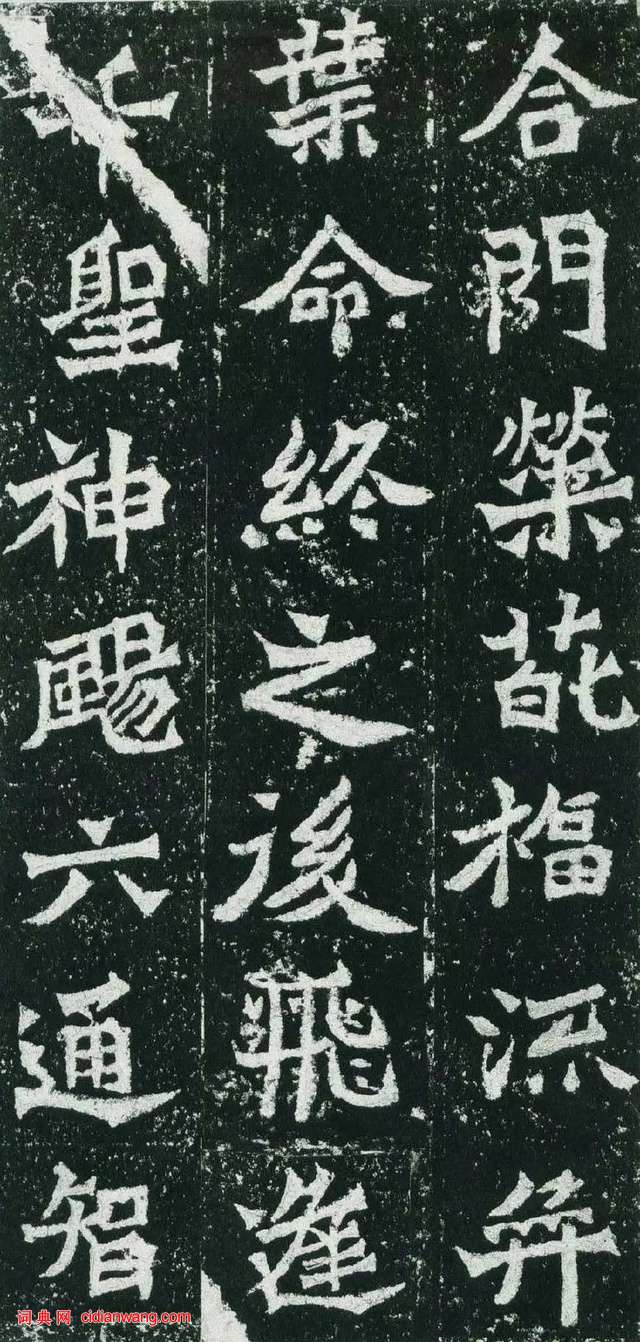 合門榮葩福流弥
葉命終之後飛逢
千聖神颺六通智
词典网 cidianwang.com